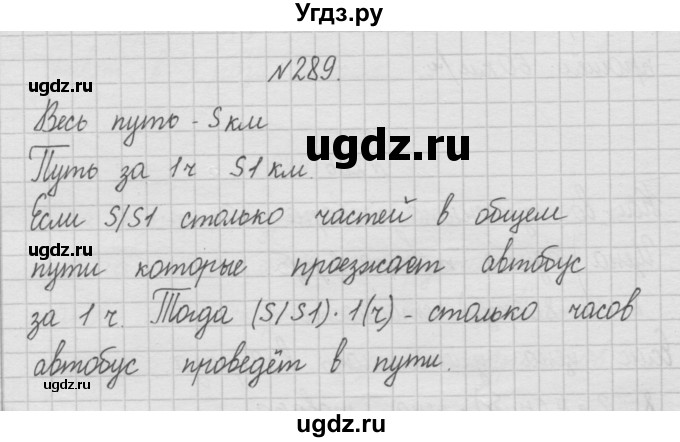 Угдз.ру
№289.
ugdz.ru
ugdz.ru
Весь путь - S км
ugdz.ru
Путь за 1 ч S1 км.
Если S/S1 столько частей в общем
ugdz.ru
пути которые проезжает автобус
за 1 ч. Тогда (S/S1)·1(ч) - столько часов
автобус проведёт в пути.
ugdz.ru
ugdz.ru
ugdz.ru